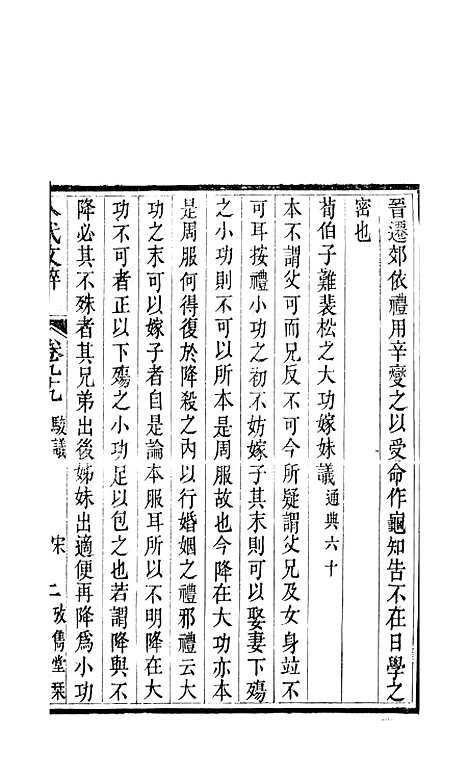 晉遷郊依禮用辛變之以受命作龜知告不在日學之
密也
荀伯子難裴松之大功嫁妹議通典六十
本不謂父可而兄反不可今所疑謂父兄及女身竝不
可耳按禮小功之初不妨嫁子其末則可以娶妻下殤
之小功則不可以所本是周服故也今降在大功亦本
是周服何得復於降殺之内以行婚姻之禮邪禮云大
功之末可以嫁子者自是論本服耳所以不明降在大
功不可者正以下殤之小功足以包之也若謂降與不
降必其不殊者其兄弟出後姊妹出適便再降爲小功
八代文粹
卷九十九 駁議 宋 二 攷雋堂栞